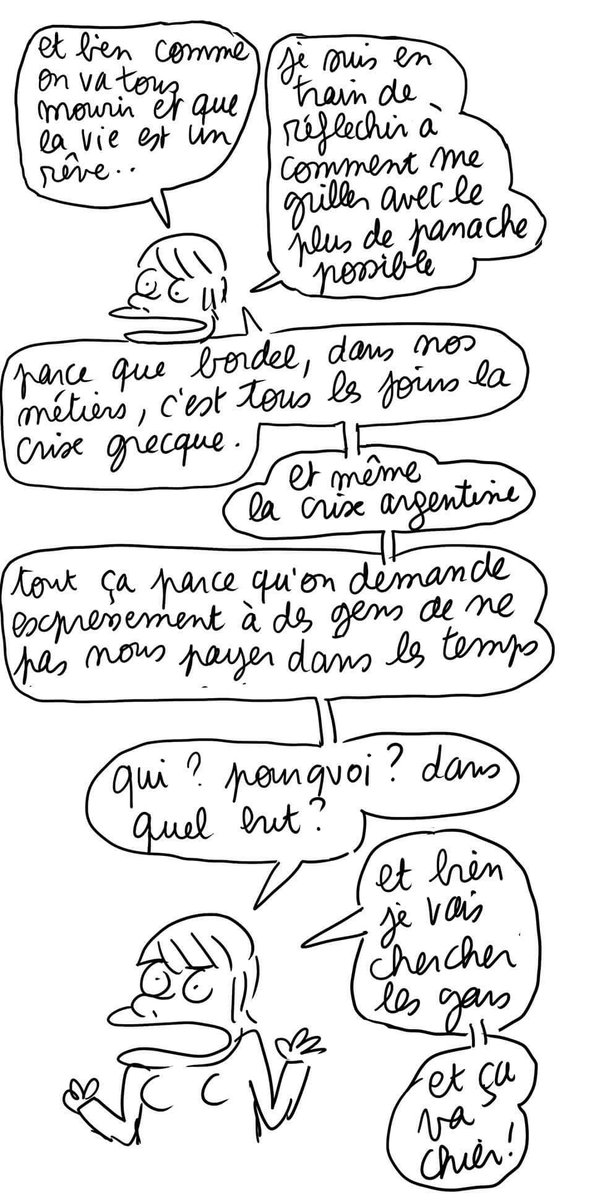 et bien comme
on va tous
mourir et que
la vie est un
rêve..
je suis en
train de
réflechir à
comment me
griller avec le
plus de panache
possible
parce que bordel, dans nos
métiers, c'est tous les jours la
crise grecque.
et même
la crise argentine
tout ça parce qu'on demande
expressement à des gens de ne
pas nous payer dans les temps
qui ? pourquoi ? dans
quel but ?
et bien
je vais
chercher
les gars
et ça
va
chier !